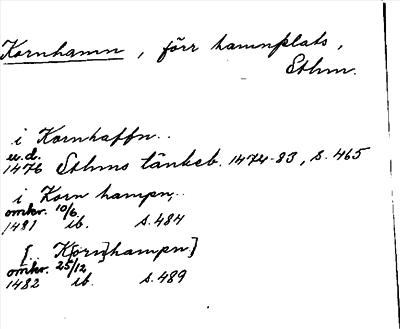 Kornhamn, förr hamnplats,
Sthm.
i Kornhaffn..
u.d.
1476 Sthms tänkeb. 1474-83, s. 465
i Korn hampn..
omkr. 10/6
1481 ib. s. 484
[.. K[orn]hampn]
omkr. 25/12
1482 ib. s. 489